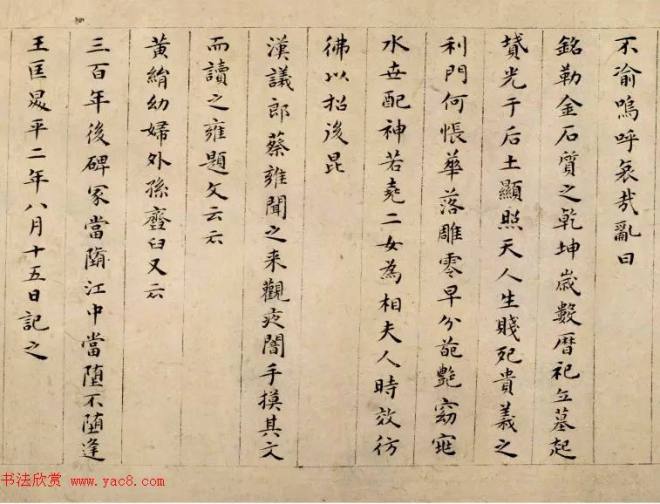 不渝嗚呼哀哉亂曰
銘勒金石質之乾坤歲數曆祀立墓起
墳光于后土顯照天人生賤死貴義之
利門何悵華落雕零早分葩艷窈窕
永世配神若堯二女為相夫人時效彷
彿以招後昆
漢議郎蔡雍聞之来觀夜闇手摸其文
而讀之雍題文云云
黃絹幼婦外孫䪢臼又云
三百年後碑冢當墮江中當墮不墮逢
王叵昇平二年八月十五日記之
书法欣赏 www.yac8.com